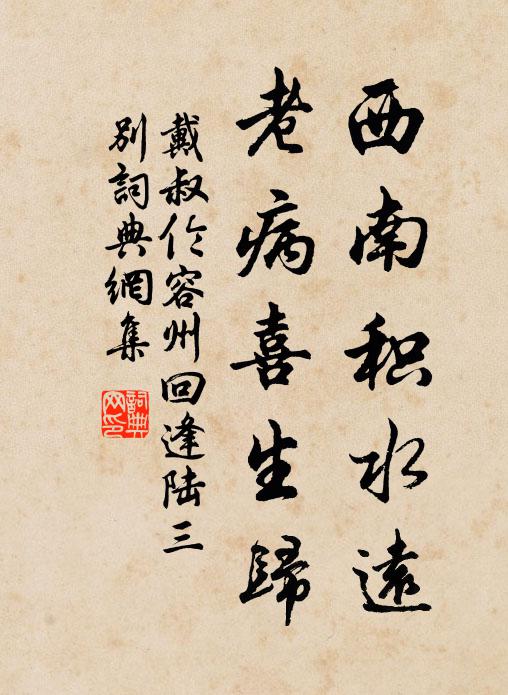 西南积水遠
老病喜生歸
戴叔伦容州回逢陆三
別詞典網集
詞典
网印